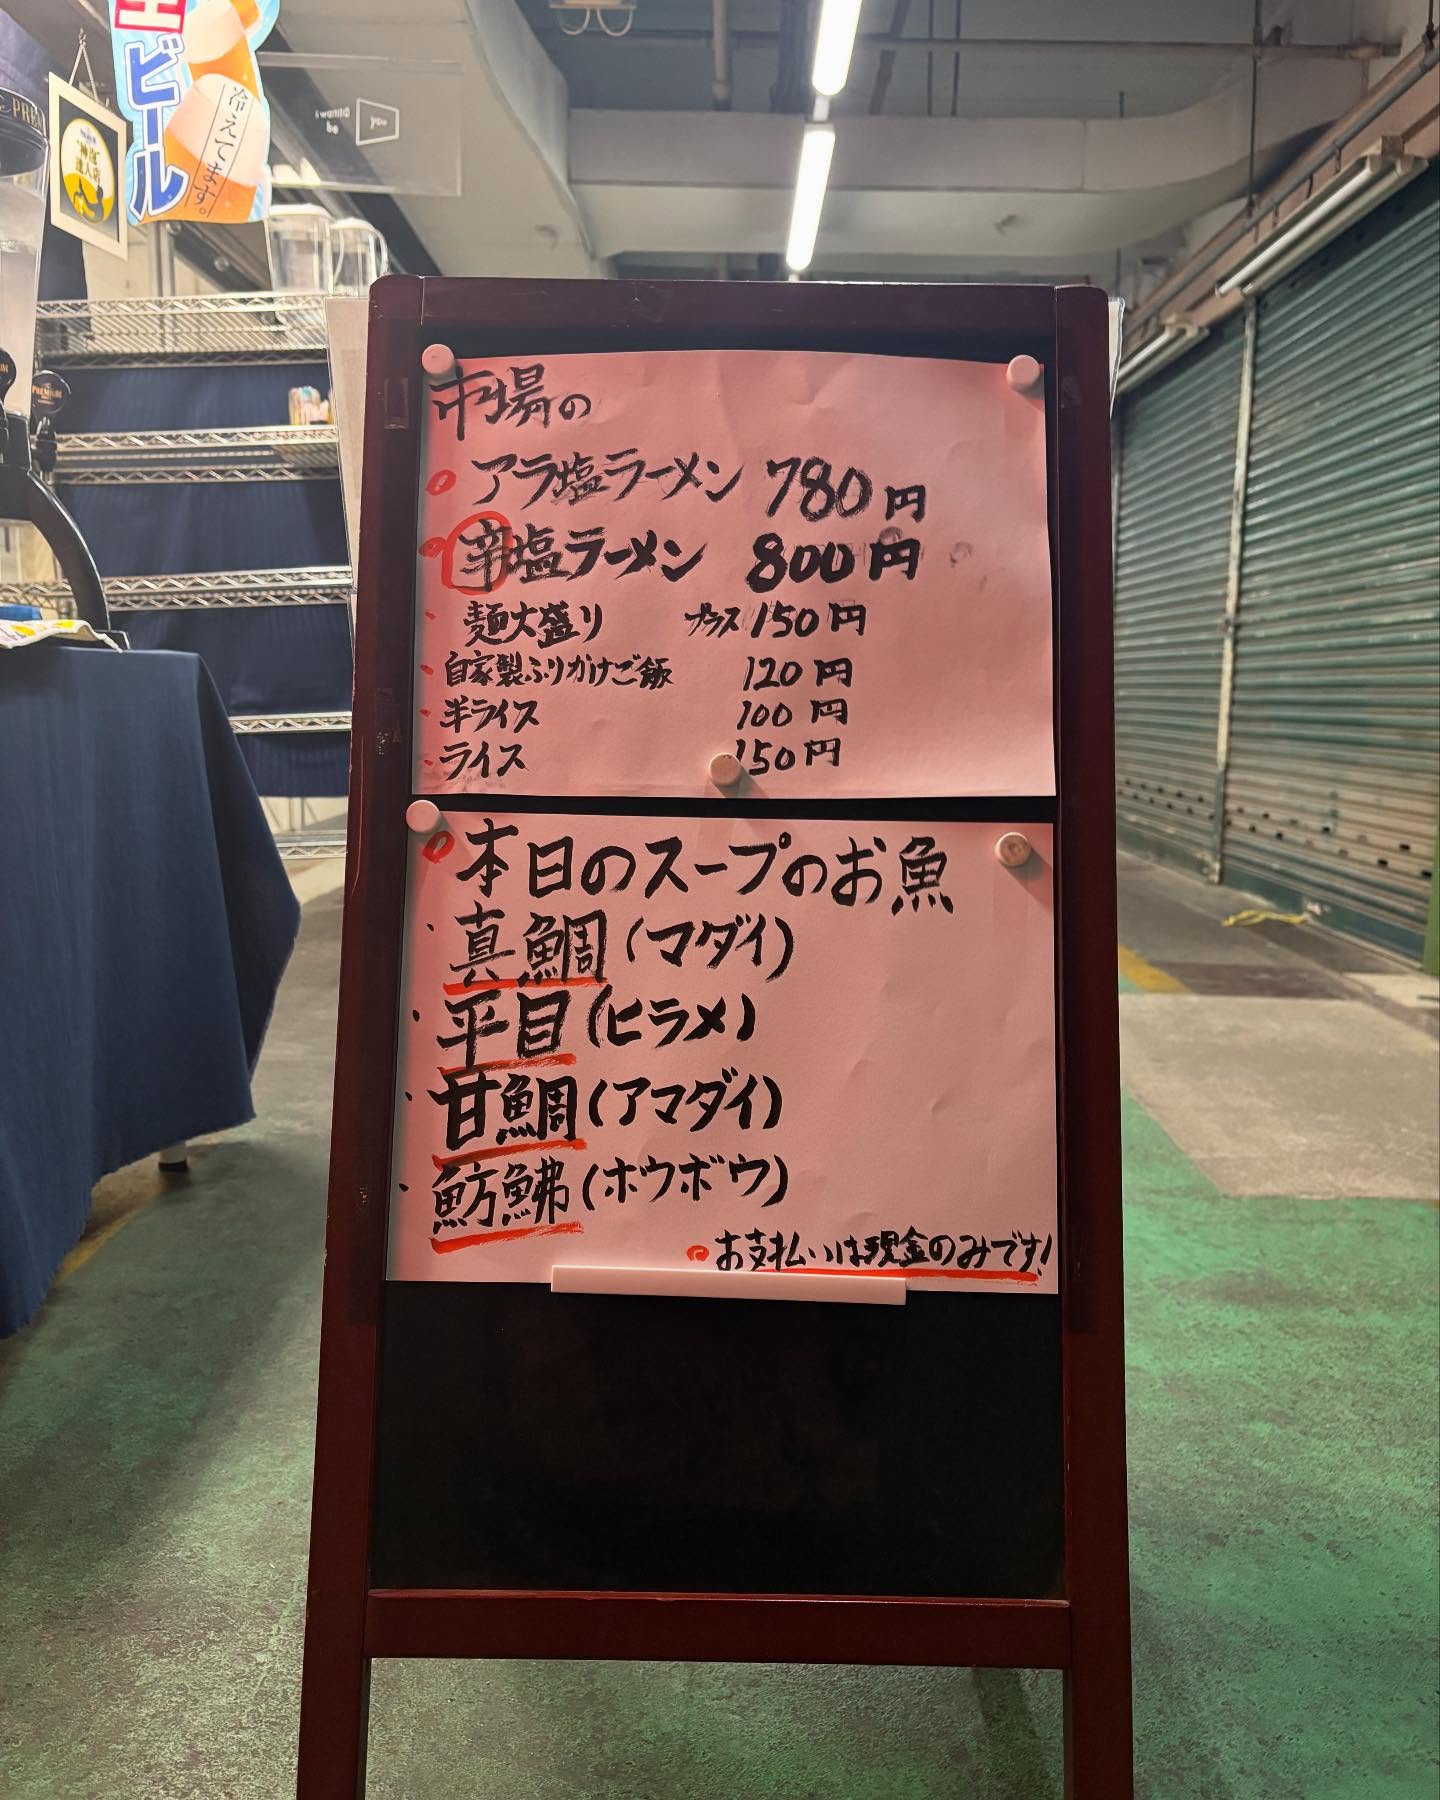 生ビール
冷えてます。
i wanna
be
you
PREMIUM
市場の
アラ塩ラーメン 780円
辛塩ラーメン 800円
麺大盛り プラス150円
自家製ふりかけご飯 120円
半ライス 100円
ライス 150円
本日のスープのお魚
真鯛(マダイ)
平目(ヒラメ)
甘鯛(アマダイ)
魴鮄(ホウボウ)
お支払いは現金のみです!